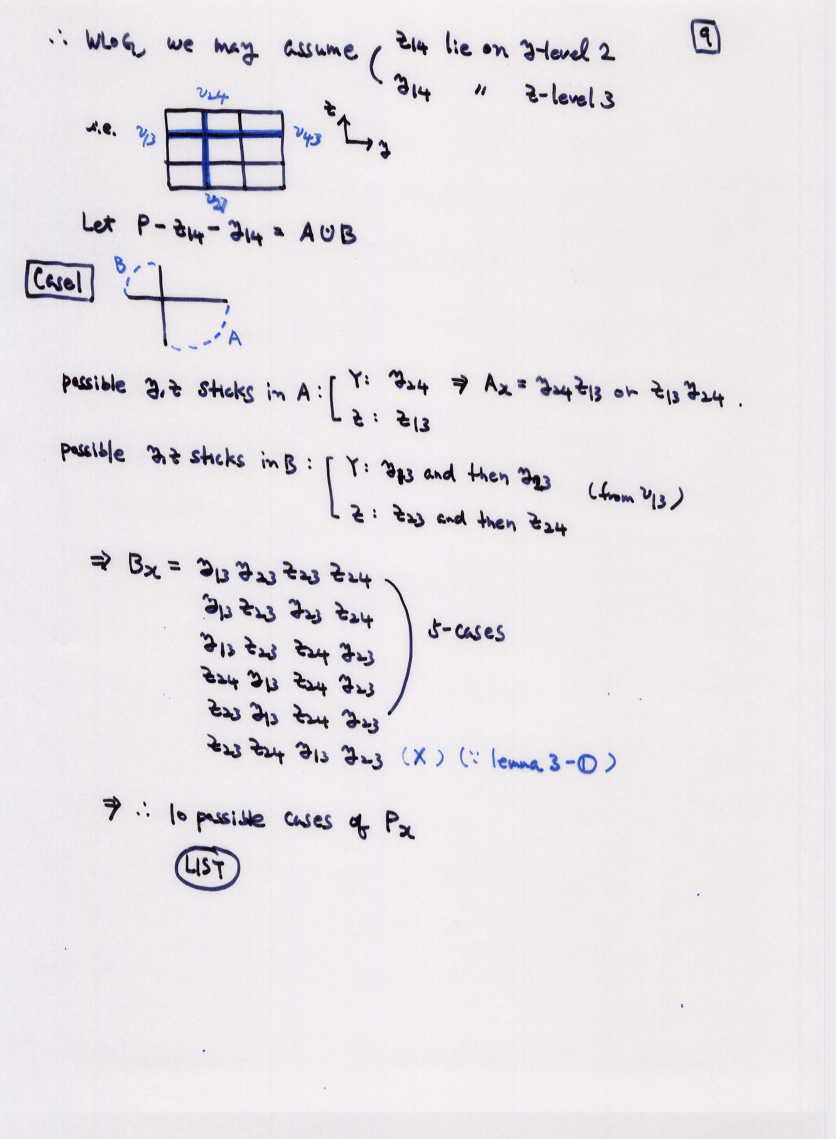 9
∴ WLOG, we may assume ( z14 lie on y-level 2
y14 〃 z-level 3
i.e. v13 v24 v43 z y
Let P - z14 - y14 = A ∪̇ B
Case1 B A
possible y, z sticks in A : [ Y : y24 ⇒ Ax = y24 z13 or z13 y24 .
z : z13
possible y, z sticks in B : [ Y : y13 and then y23 (from v13)
z : z23 and then z24
⇒ Bx = y13 y23 z23 z24
y13 z23 y23 z24
y13 z23 z24 y23 5-cases
z24 y13 z24 y23
z23 y13 z24 y23
z23 z24 y13 y23 (X) (∵ lemma 3-①)
⇒ ∴ 10 possible cases of Px
LIST